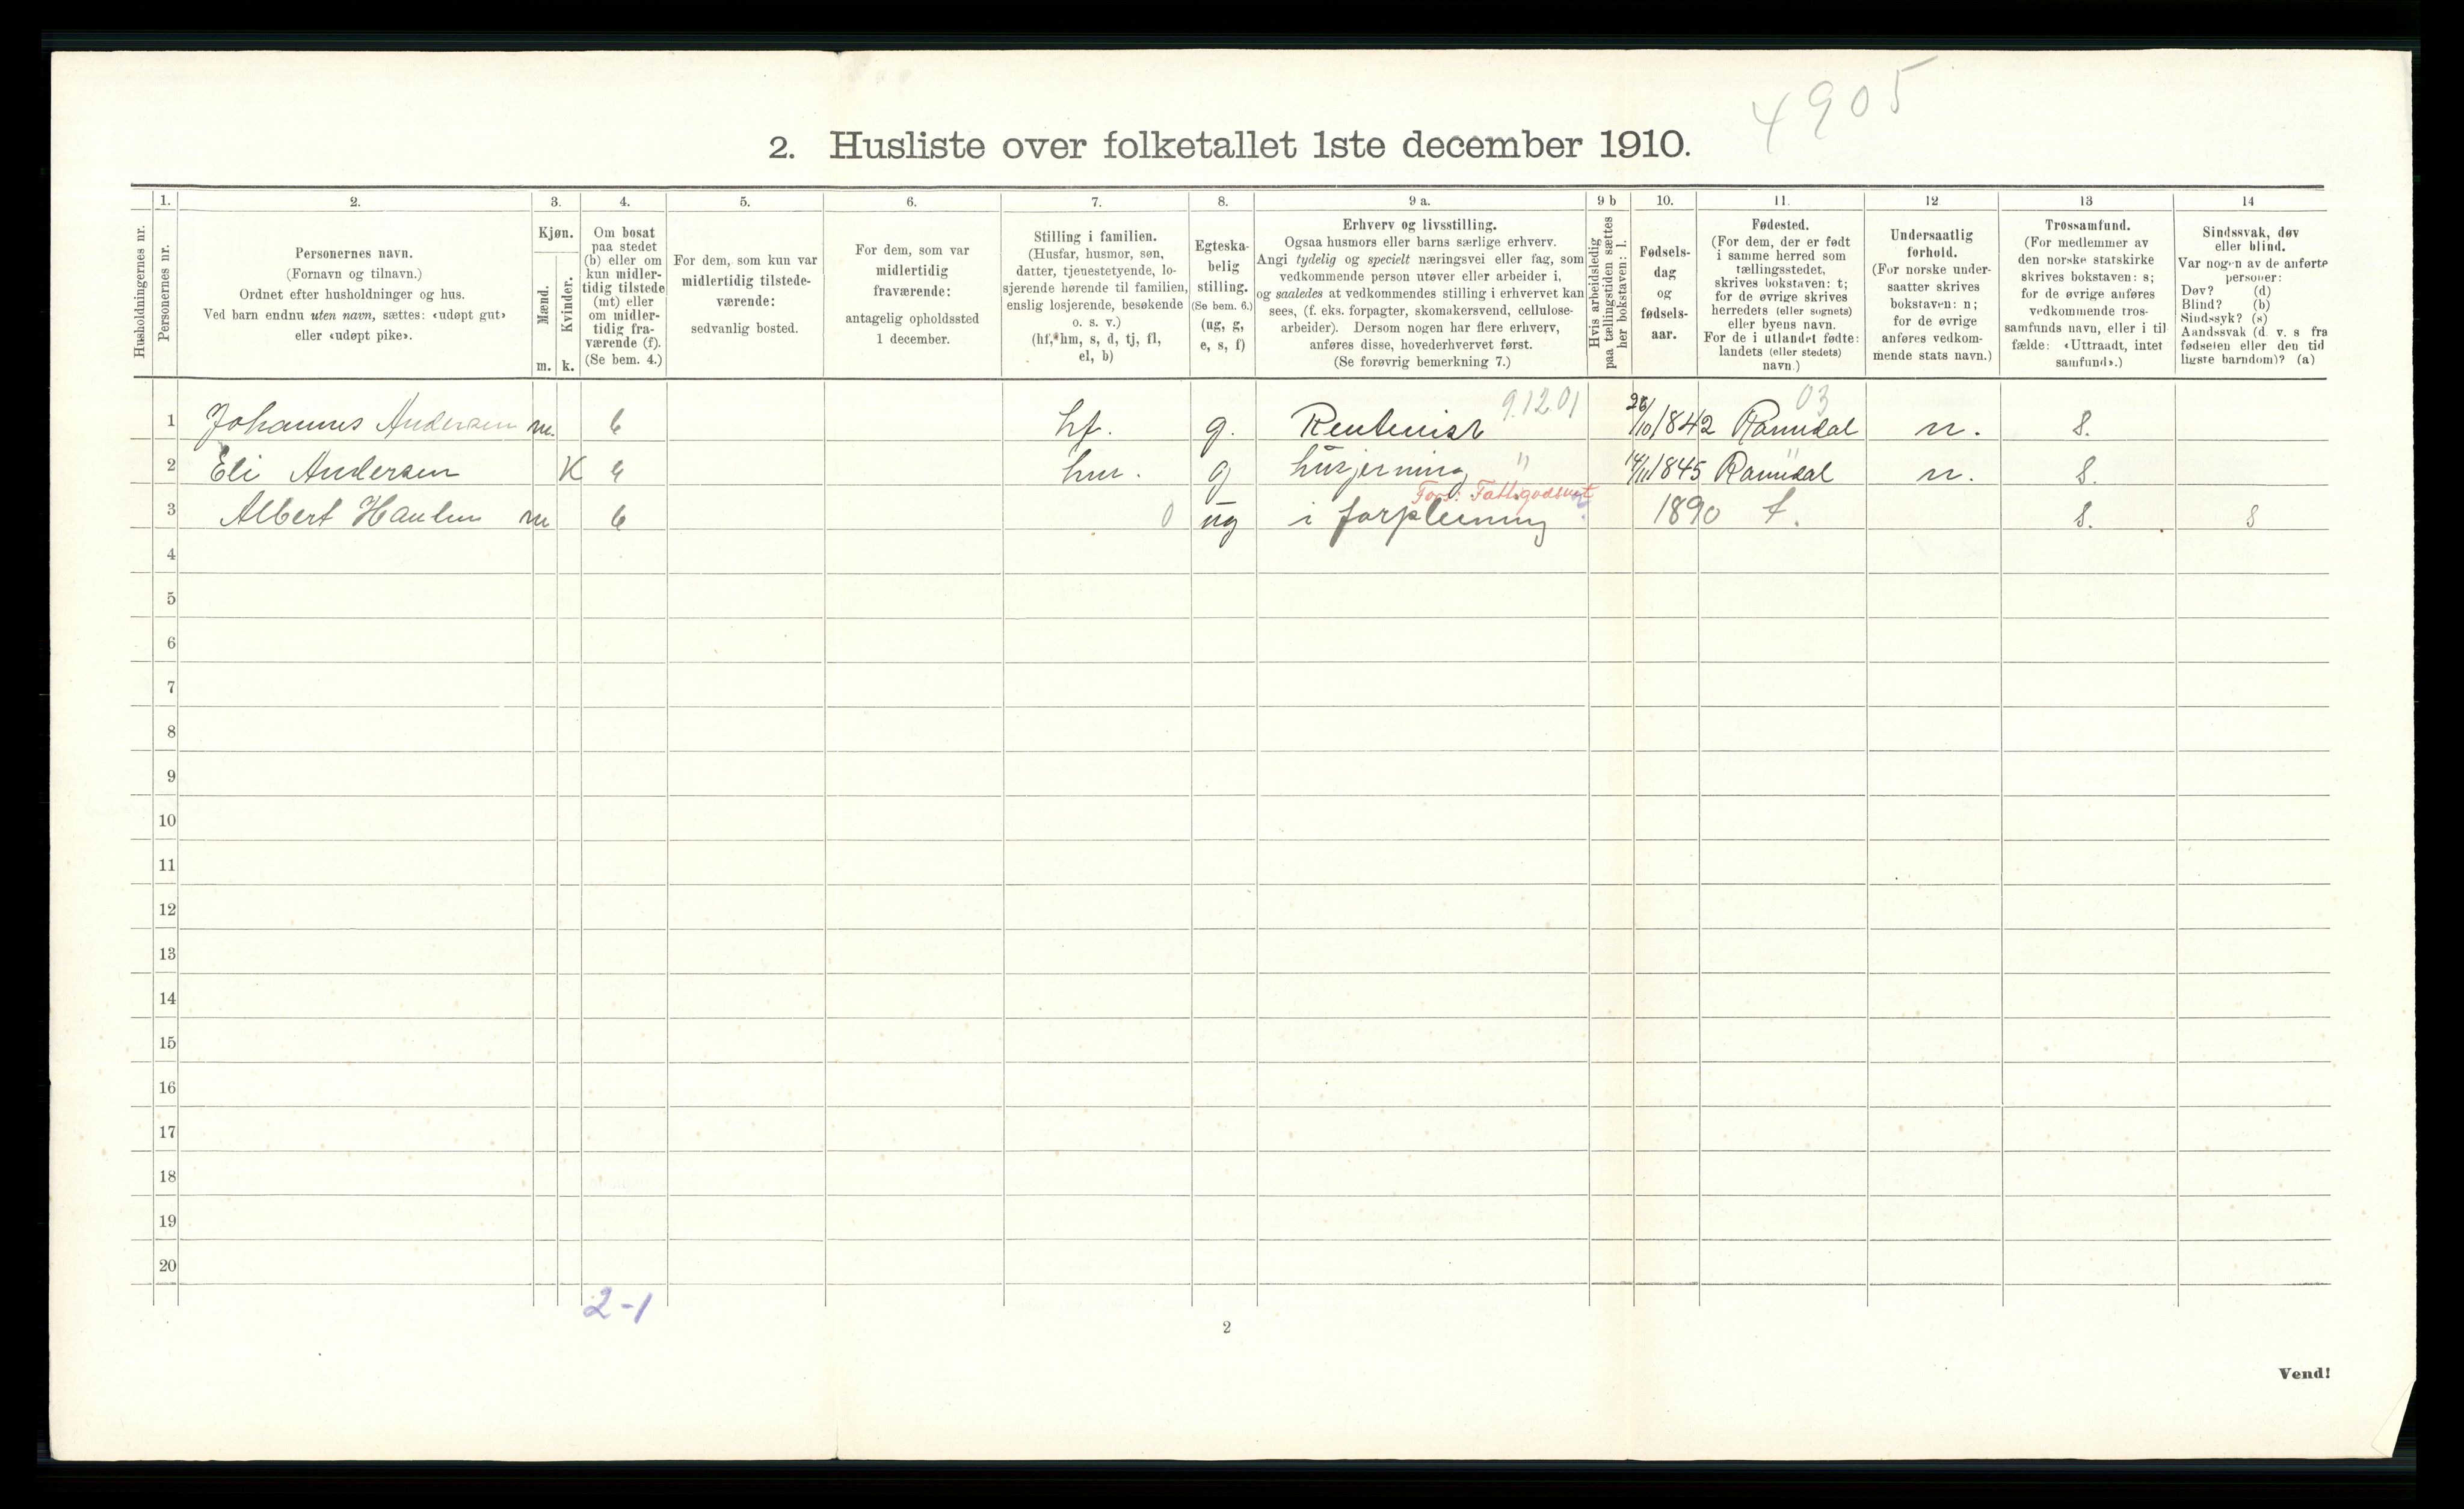 4905
2. Husliste over folketallet 1ste december 1910.
1. 2. 3. 4. 5. 6. 7. 8. 9 a. 9 b 10. 11. 12 13 14
Husholdningernes nr.
Personernes nr.
Personernes navn.
(Fornavn og tilnavn.)
Ordnet efter husholdninger og hus.
Ved barn endnu uten navn, sættes: «udøpt gut»
eller «udøpt pike».
Kjøn.
Mænd.
Kvinder.
m. k.
Om bosat
paa stedet
(b) eller om
kun midler-
tidig tilstede
(mt) eller
om midler-
tidig fra-
værende (f).
(Se bem. 4.)
For dem, som kun var
midlertidig tilstede-
værende:
sedvanlig bosted.
For dem, som var
midlertidig
fraværende:
antagelig opholdssted
1 december.
Stilling i familien.
(Husfar, husmor, søn,
datter, tjenestetyende, lo-
sjerende hørende til familien,
enslig losjerende, besøkende
o. s. v.)
(hf,*hm, s, d, tj, fl,
el, b)
Egteska-
belig
stilling.
(Se bem. 6.)
(ug, g,
e, s, f)
Erhverv og livsstilling.
Ogsaa husmors eller barns særlige erhverv.
Angi tydelig og specielt næringsvei eller fag, som
vedkommende person utøver eller arbeider i,
og saaledes at vedkommendes stilling i erhvervet kan
sees, (f. eks. forpagter, skomakersvend, cellulose-
arbeider). Dersom nogen har flere erhverv,
anføres disse, hovederhvervet først.
(Se forøvrig bemerkning 7.)
Hvis arbeidsledig
paa tællingstiden sættes
her bokstaven: l.
Fødsels-
dag
og
fødsels-
aar.
Fødested.
(For dem, der er født
i samme herred som
tællingsstedet,
skrives bokstaven: t;
for de øvrige skrives
herredets (eller sognets)
eller byens navn.
For de i utlandet fødte:
landets (eller stedets)
navn.)
Undersaatlig
forhold.
(For norske under-
saatter skrives
bokstaven: n;
for de øvrige
anføres vedkom-
mende stats navn.)
Trossamfund.
(For medlemmer av
den norske statskirke
skrives bokstaven: s;
for de øvrige anføres
vedkommende tros-
samfunds navn, eller i til
fælde: «Uttraadt, intet
samfund».)
Sindssvak, døv
eller blind.
Var nogen av de anførte
personer:
Døv? (d)
Blind? (b)
Sindssyk? (s)
Aandssvak (d. v. s fra
fødselen eller den tid
ligste barndom)? (a)
9.12.01 03
1 Johannes Andersen m. b hf. g. Rentenist 26/10 1842 Ramdal n. s.
2 Eli Andersen K b hm. g husjerning " 14/11 1845 Ramdal n. s.
Fors: Fattigvæsnet
3 Albert Hansen m b 0 ug i forpleining 1890 t. s. s
4
5
6
7
8
9
10
11
12
13
14
15
16
17
18
19
20
2-1
2
Vend!